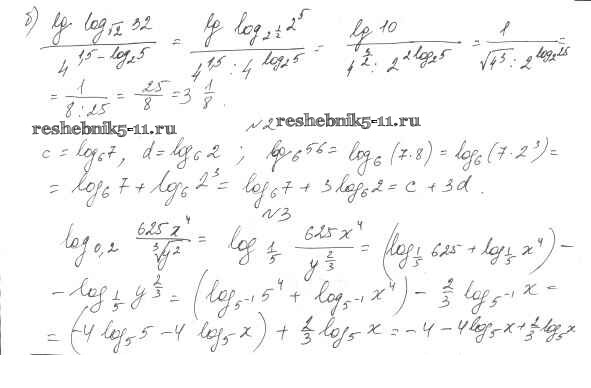 б) lg log_√2 32 / 4^(1,5 - log_2 5) = lg log_(2^(1/2)) 2^5 / (4^1,5 : 4^(log_2 5)) = lg 10 / (4^(3/2) : 2^(2 log_2 5)) = 1 / (√4^3 : 2^(log_2 25)) =
= 1 / (8 : 25) = 25/8 = 3 1/8 .
reshebnik5-11.ru №2 reshebnik5-11.ru
c = log_6 7, d = log_6 2 ; log_6 56 = log_6 (7·8) = log_6 (7·2^3) =
= log_6 7 + log_6 2^3 = log_6 7 + 3 log_6 2 = c + 3d .
№3
log_0,2 625x^4 / ∛y^2 = log_(1/5) 625x^4 / y^(2/3) = (log_(1/5) 625 + log_(1/5) x^4) -
- log_(1/5) y^(2/3) = (log_(5^-1) 5^4 + log_(5^-1) x^4) - 2/3 log_(5^-1) x =
= (-4 log_5 5 - 4 log_5 x) + 2/3 log_5 x = -4 - 4 log_5 x + 2/3 log_5 x